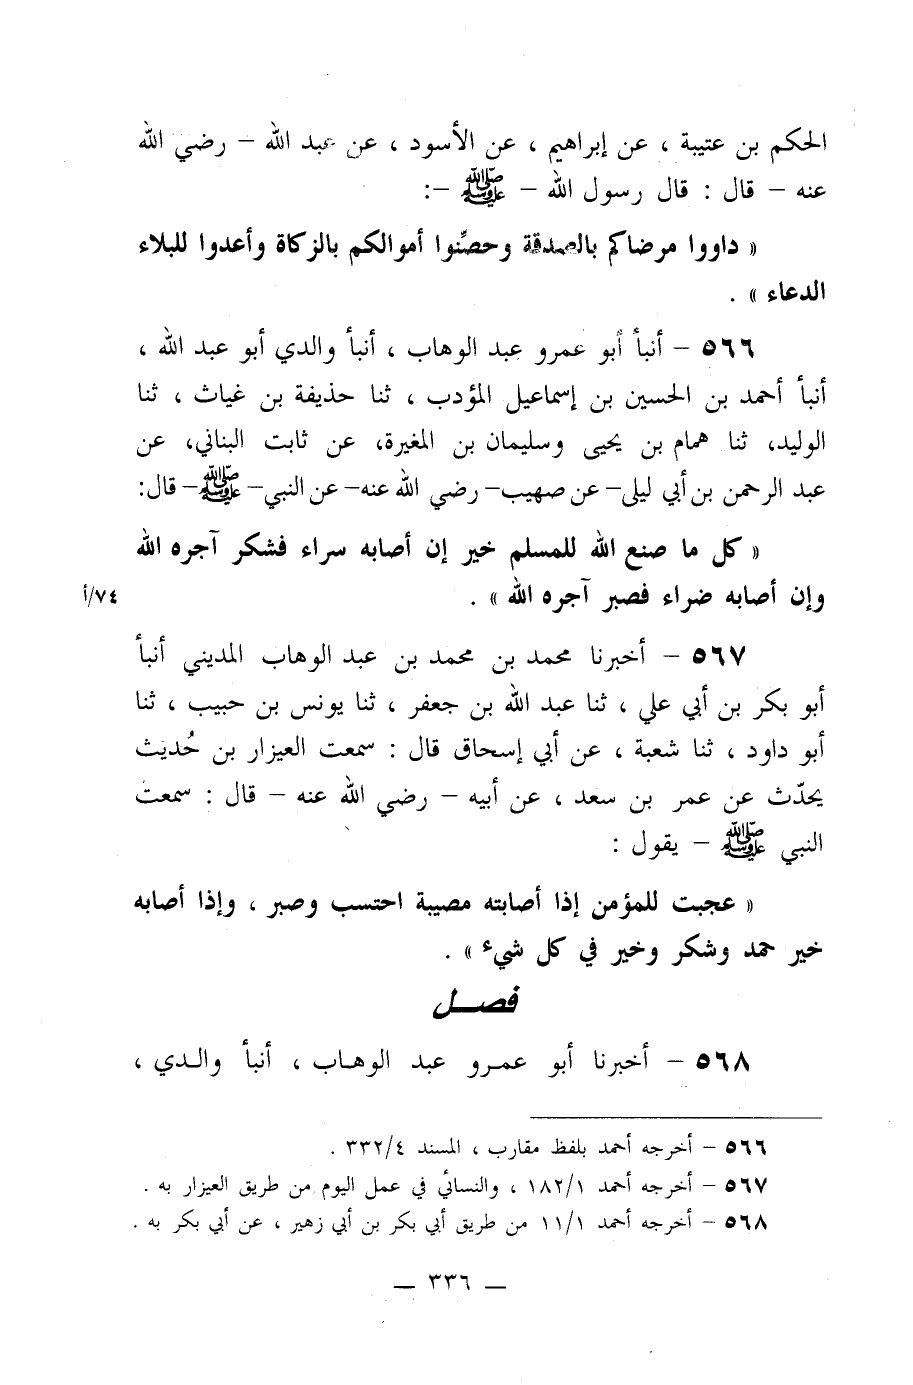 الحكم بن عتيبة ، عن إبراهيم ، عن الأسود ، عن عبد الله – رضي الله
عنه – قال : قال رسول الله – ﷺ –:
« داووا مرضاكم بالصدقة وحصِّنوا أموالكم بالزكاة وأعدوا للبلاء
الدعاء » .
٥٦٦ – أنبأ أبو عمرو عبد الوهاب ، أنبأ والدي أبو عبد الله ،
أنبأ أحمد بن الحسين بن إسماعيل المؤدب ، ثنا حذيفة بن غياث ، ثنا
الوليد، ثنا همام بن يحيى وسليمان بن المغيرة، عن ثابت البناني، عن
عبد الرحمن بن أبي ليلى– عن صهيب– رضي الله عنه– عن النبي– ﷺ– قال:
« كل ما صنع الله للمسلم خير إن أصابه سراء فشكر آجره الله
وإن أصابه ضراء فصبر آجره الله » .
٧٤/أ
٥٦٧ – أخبرنا محمد بن محمد بن عبد الوهاب المديني أنبأ
أبو بكر بن أبي علي ، ثنا عبد الله بن جعفر ، ثنا يونس بن حبيب ، ثنا
أبو داود ، ثنا شعبة ، عن أبي إسحاق قال : سمعت العيزار بن حُديث
يحدّث عن عمر بن سعد ، عن أبيه – رضي الله عنه – قال : سمعت
النبي ﷺ – يقول :
« عجبت للمؤمن إذا أصابته مصيبة احتسب وصبر ، وإذا أصابه
خير حمد وشكر وخير في كل شيء » .
فصـــل
٥٦٨ – أخبرنا أبو عمـرو عبد الوهـاب ، أنبأ والـدي ،
٥٦٦ – أخرجه أحمد بلفظ مقارب ، المسند ٣٣٢/٤ .
٥٦٧ – أخرجه أحمد ١٨٢/١ ، والنسائي في عمل اليوم من طريق العيزار به .
٥٦٨ – أخرجه أحمد ١١/١ من طريق أبي بكر بن أبي زهير ، عن أبي بكر به .
– ٣٣٦ –